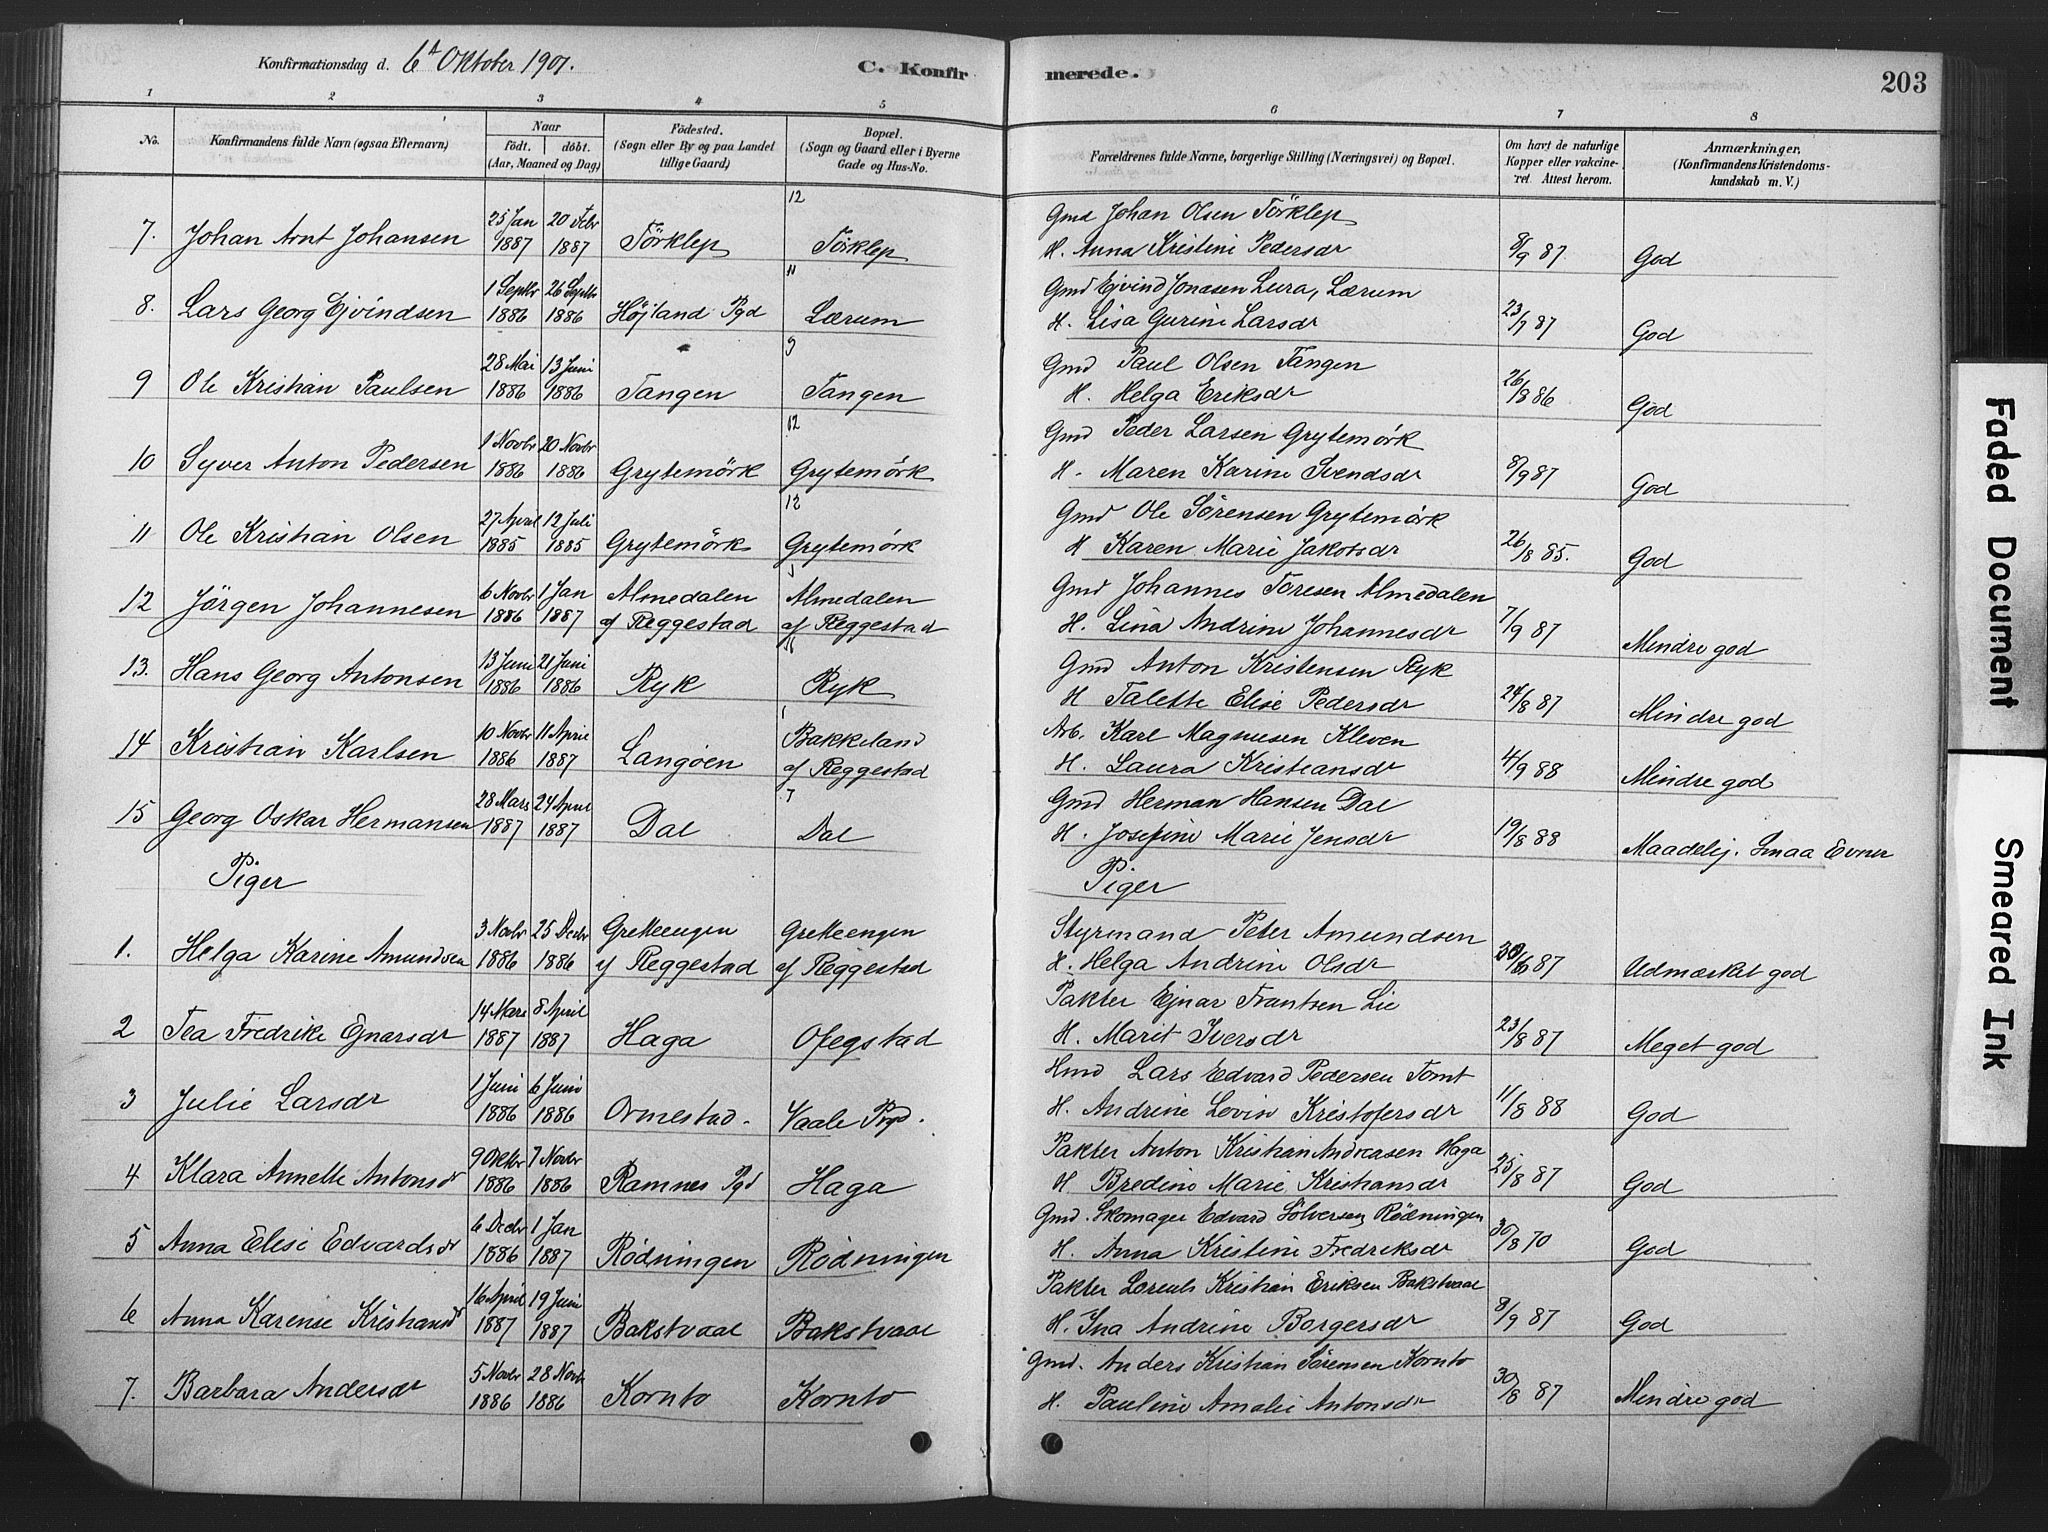 Konfirmationsdag d. 6t Oktober 1901.
C. Konfir
merede.
203
1 2 3 4 5 6 7 8
No.
Konfirmandens fulde Navn (ogsaa Efternavn)
Naar
födt. döbt.
(Aar, Maaned og Dag)
Födested.
(Sogn eller By og paa Landet
tillige Gaard)
Bopæl.
(Sogn og Gaard eller i Byerne
Gade og Hus-No.
Forældrenes fulde Navne, borgerlige Stilling (Næringsvei) og Bopæl.
Om havt de naturlige
Kopper eller vakcine-
ret. Attest herom.
Anmærkninger.
(Konfirmandens Kristendoms-
kundskab m. V.)
12
25 Jan 20 Febr Gmd Johan Olsen Törklep
7. Johan Arnt Johansen 1887 1887 Törklep Törklep H. Anna Kristine Pedersdr 8/9 87 God
11
1 Septbr 26 Septbr Gmd Ejvind Jonasen Lura, Lærum
8. Lars Georg Ejvindsen 1886 1886 Höjland Pgd Lærum H. Lisa Gurine Larsdr 23/7 87 God
9
28 Mai 13 Juni Gmd Paul Olsen Tangen
9 Ole Kristian Paulsen 1886 1886 Tangen Tangen H. Helga Eriksdr 26/8 86 God
12
1 Novbr 20 Novbr Gmd Peder Larsen Grytemörk
10 Syver Anton Pedersen 1886 1886 Grytemörk Grytemörk H. Maren Karine Svendsdr 8/9 87 God
12
27 April 12 Juli Gmd Ole Sörensen Grytemörk
11 Ole Kristian Olsen 1885 1885 Grytemörk Grytemörk H Karen Marie Jakobsdr 26/8 85. God
6 Novbr 1 Jan Almedalen Almedalen Gmd Johannes Toresen Almedalen
12 Jörgen Johannesen 1886 1887 af Reggestad af Reggestad H. Lina Andrine Johannesdr 7/9 87 Mindre god
13 Juni 21 Juni Gmd Anton Kristensen Ryk
13. Hans Georg Antonsen 1886 1886 Ryk Ryk H Talette Elise Pedersdr 24/8 87 Mindre god
1
10 Novbr 11 April Bakkeland Arb. Karl Magnusen Kleven
14 Kristian Karlsen 1886 1887 Langöen af Reggestad H. Laura Kristiansdr 4/9 88 Mindre god
7
28 Mars 24 April Gmd Herman Hansen Dal
15 Georg Oskar Hermansen 1887 1887 Dal Dal H. Josefine Marie Jensdr 19/8 88 Maadelig. Smaa Evner
Piger Piger
3 Novbr 25 Decbr Gretteengen Gretteengen Styrmand Peter Amundsen
1. Helga Karine Amundsen 1886 1886 af Reggestad af Reggestad H. Helga Andrine Olsdr 87 Udmærket god
14 Mars 8 April Pakter Ejnar Frantsen Lie
2 Tea Fredrike Ejnarsdr 1887 1887 Haga Ofegstad H. Marit Iversdr 23/8 87 Meget god
1 Juni 6 Juni Hmd Lars Edvard Pedersen Tomt
3 Julie Larsdr 1886 1886 Ormestad. Vaale Pgd. H. Andrine Lovise Kristofersdr 11/8 88 God
9 Oktbr 7 Novbr Pakter Anton Kristian Andreasen Haga
4 Klara Annette Antonsdr 1886 1886 Ramnes Pgd Haga H Bredine Marie Kristiansdr 25/8 87 God
6 Decbr 1 Jan Gmd. Skomager Edvard Sölversen Rödningen
5 Anna Elise Edvardsdr 1886 1887 Rödningen Rödningen H. Anna Kristine Fredriksdr 30/8 70 God
16 April 19 Juni Pakter Lorents Kristian Eriksen Bakstvaal
6 Anna Karense Kristiansdr 1887 1887 Bakstvaal Bakstvaal H. Ina Andrine Borgersdr 8/9 87 God
5 Novbr 28 Novbr Gmd. Anders Kristian Sörensen Kornto
7. Barbara Andersdr 1886 1886 Kornto Kornto H. Pauline Amalie Antonsdr 30/8 87 Mindre god
Faded Document
Smeared Ink